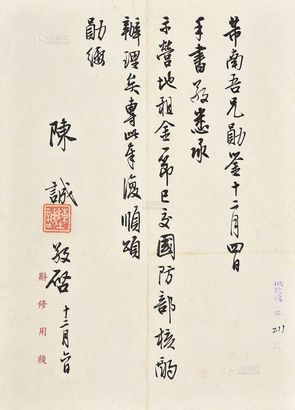 芾南吾兄勛鉴十二月四日
手書敬悉承
示營地租金一節已交國防部核酌
辦理矣專此奉復順頌
勛綏
陳誠
敬啓
十二月
辭修用牋
211